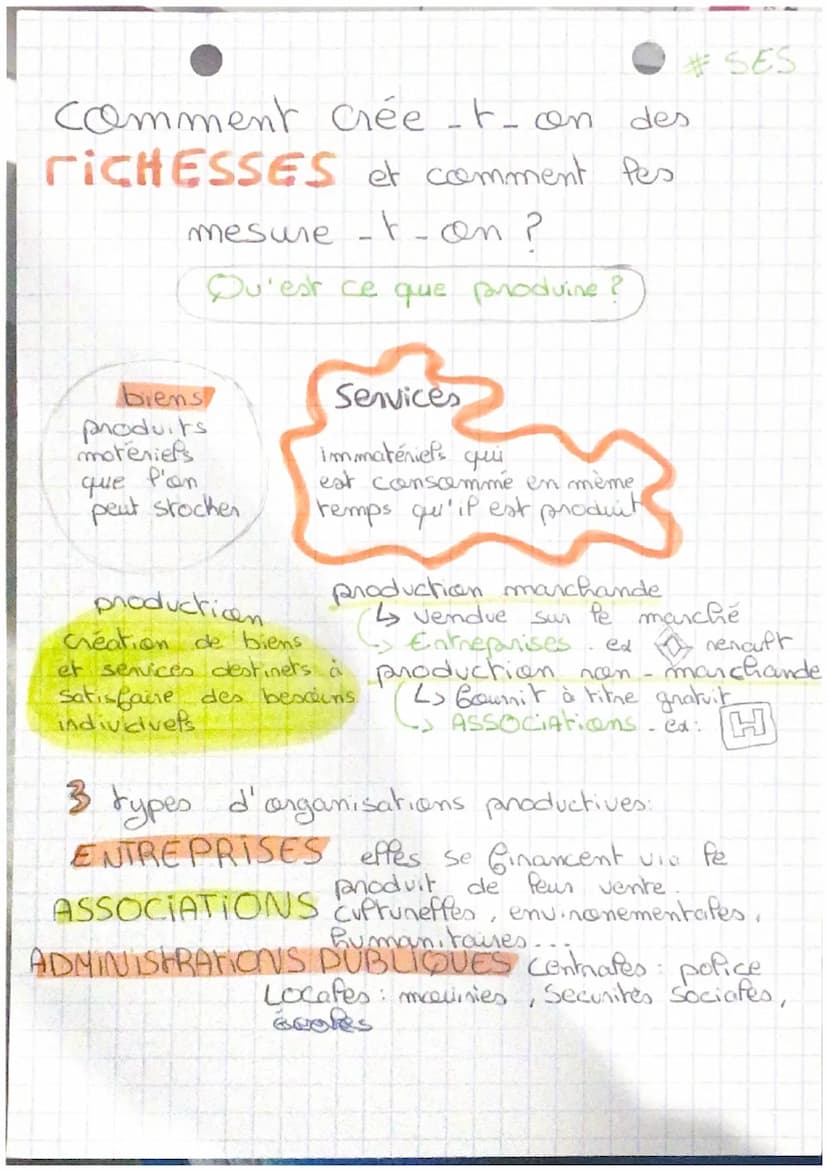 # SES
Comment crée-t-on des
RICHESSES et comment les
mesure-t-on ?
Qu'est ce que produire ?
biens
produits
matériels
que l'on
peut stocker
Services
immatériels qui
est consommé en même
temps qu'il est produit
production
création de biens
et services destinets à
satisfaire des besoins
individuels
production marchande
↳ vendue sur le marché
↳ Entreprises. ex renault
production non-marchande
↳ fournit à titre gratuit
↳ ASSOCIATIONS. ex: H
3 types d'organisations productives:
ENTREPRISES elles se financent via le
produit de leur vente.
ASSOCIATIONS culturelles, environementales,
humanitaires...
ADMINISTRATIONS PUBLIQUES Centrales: police
Locales: mairies, Sécurités sociales,
écoles